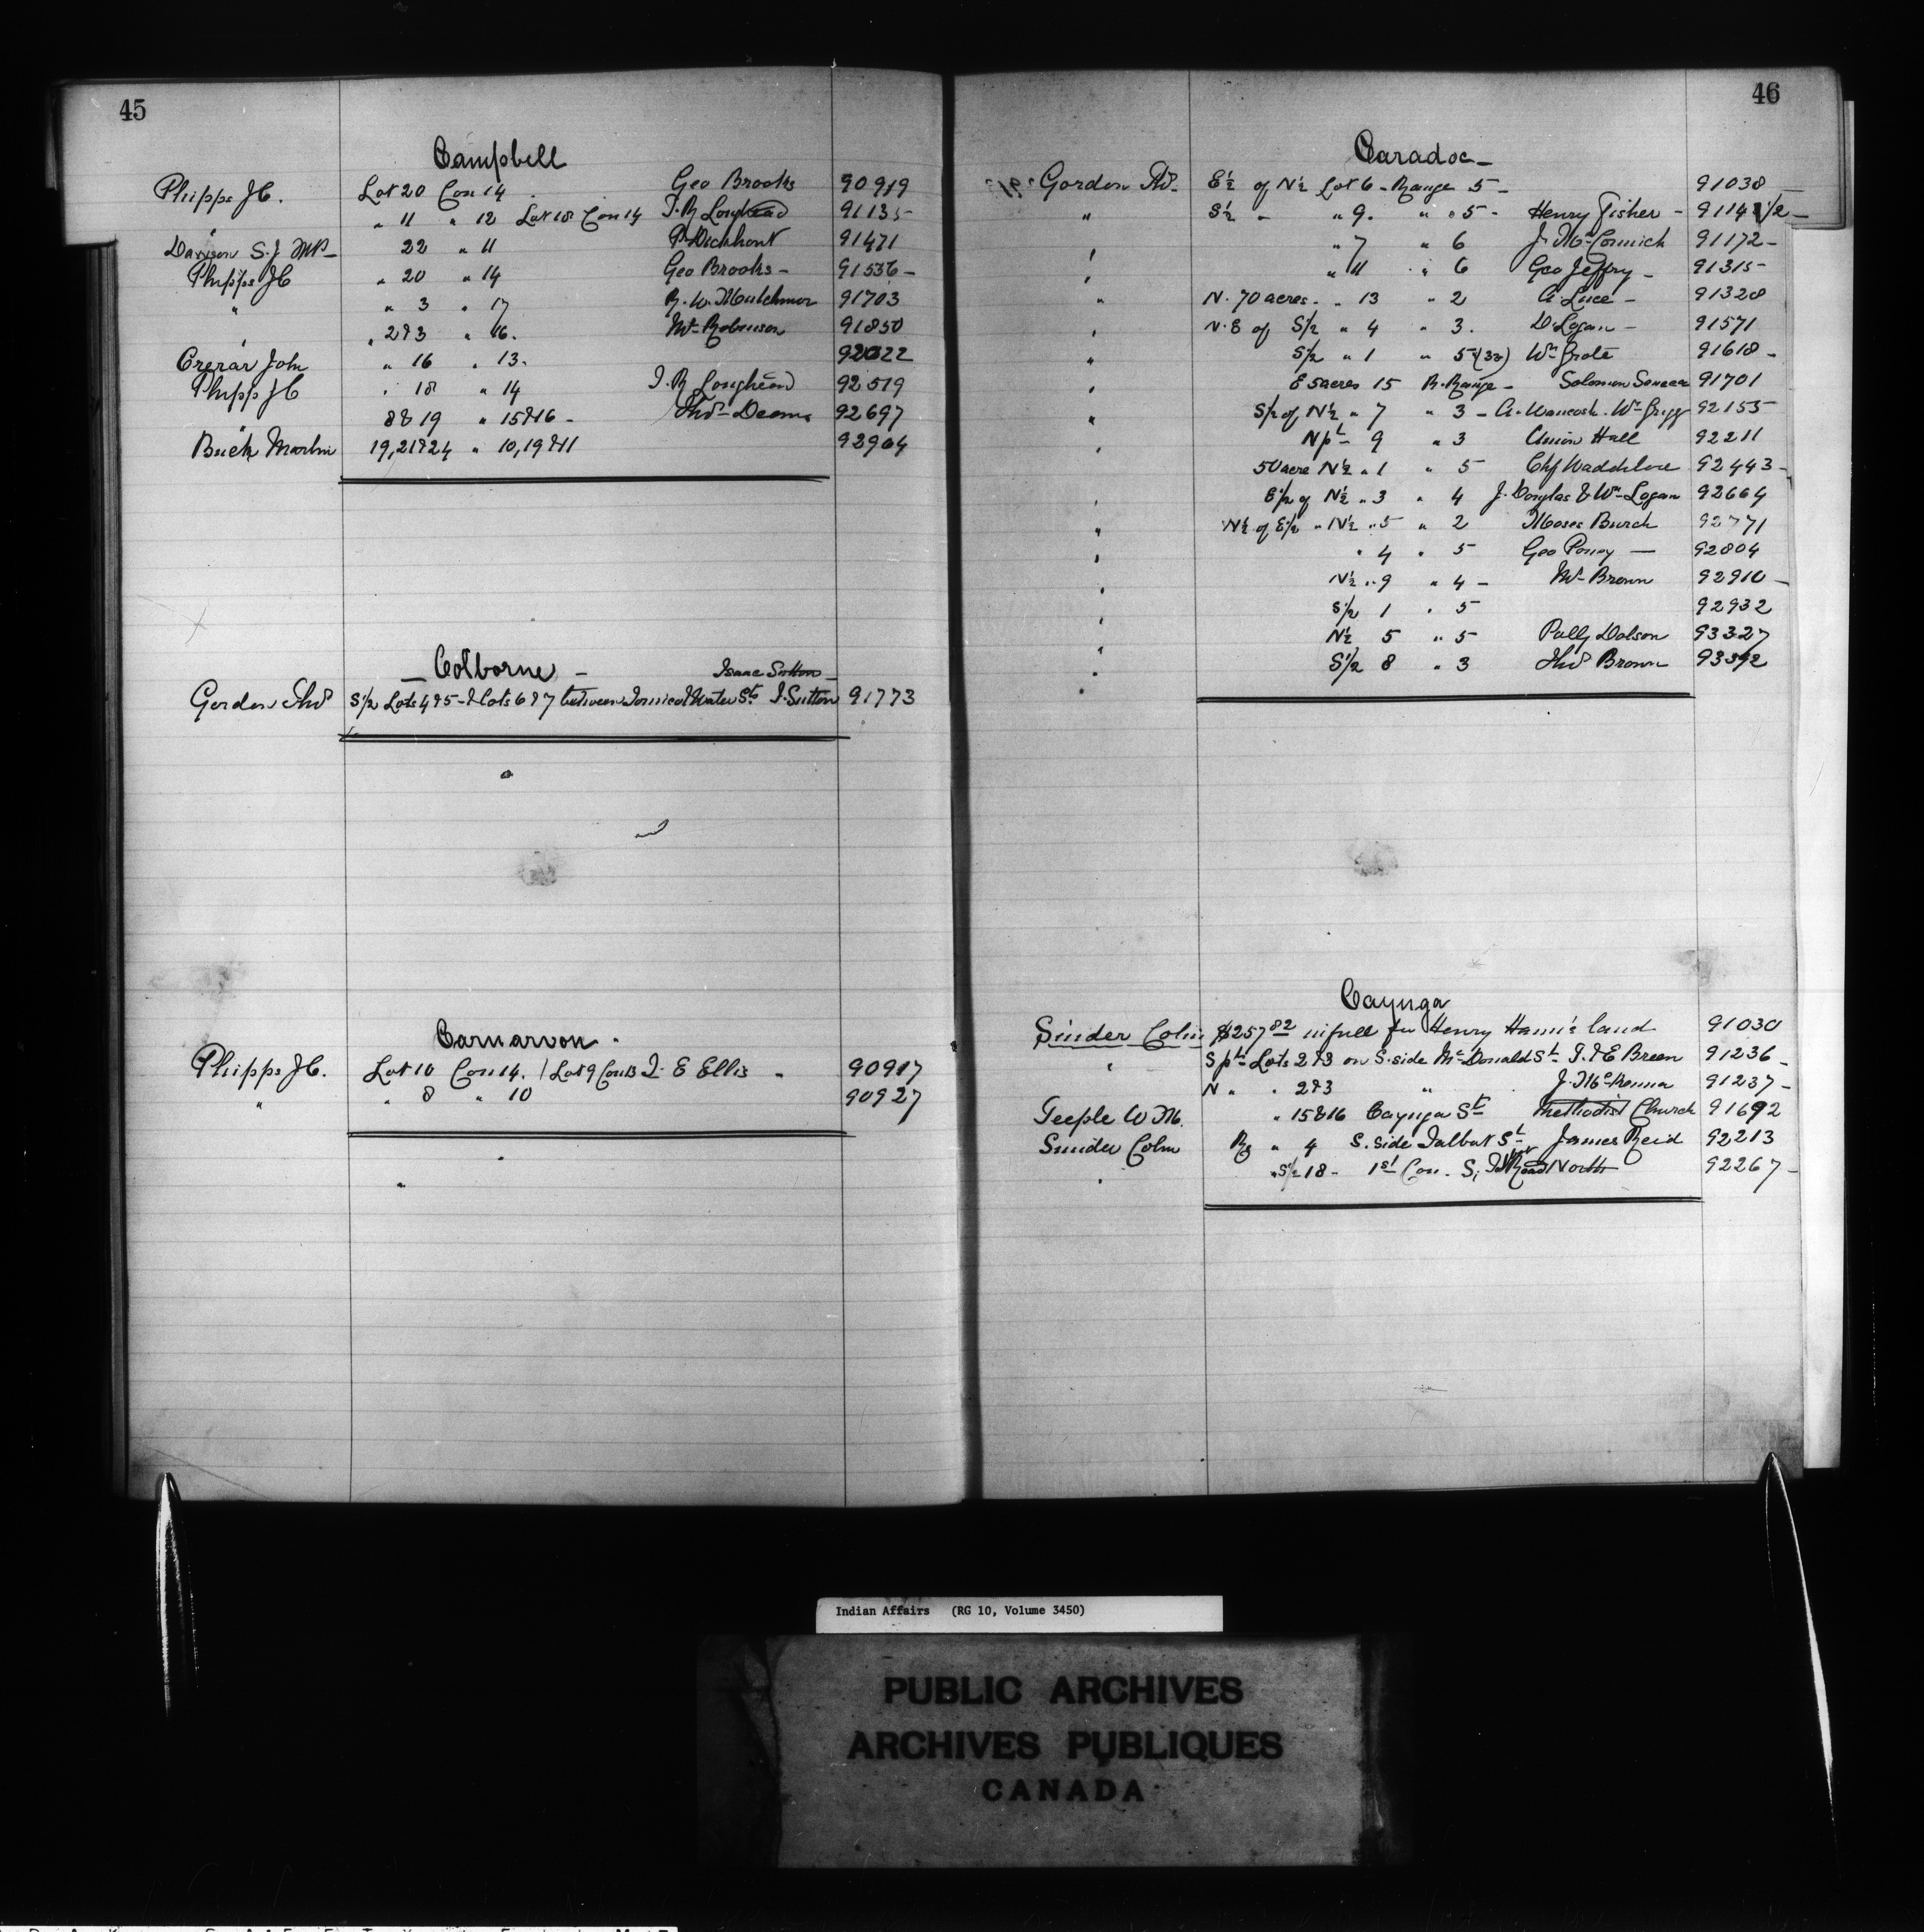 45
Campbell
Phipps J C. Lot 20 Con 14 Geo Brooks 90919
" " 11 " 12 Lot 18 Con 14 J. R Loughead 91135
Dawson S. J MP 22 " 11 91471
Phipps J C " 20 " 14 Geo Brooks - 91536 -
" " 3 " 17 R. W. Mutchmor 91703
" " 2 & 3 " 16. Mr Robinson 91850
Crerar John " 16 " 13. 92022
Phipp J C " 18 " 14 J. R Loughead 92519
" 8 & 19 " 15 & 16 - Thos Deans 92697
Buck Martin 19, 21 & 24 " 10, 19 & 11 92904
Colborne - Isaac Sutton
Gordon Thos S 1/2 Lots 4 & 5 - & Lots 6 & 7 between Water St. I. Sutton 91773
Carnarvon.
Phipps J C. Lot 10 Con 14. / Lot 9 Con 13 J. E Ellis 90917
" " 8 " 10 90927
46
Caradoc -
Gordon Thos. E 1/2 of N 1/2 Lot 6 - Range 5 - 91038
" S 1/2 " " 9. " " 5 - Henry Fisher - 91141 1/2 -
" " 7 " 6 J. McCormick 91172 -
" " 11 " 6 Geo Jeffry - 91315 -
" N. 70 acres. " 13 " 2 A Luce - 91328
" N. E of S 1/2 " 4 " 3. D. Logan - 91571
" S 1/2 " 1 " 5 Wm Grote 91618 -
" E 5 acres 15 R. Range - Solomon Seneca 91701
" S 1/2 of N 1/2 " 7 " 3 - A. Wancosh. Wm Grigg 92155
" N pt 9 " 3 Union Hall 92211
50 acre N 1/2 " 1 " 5 Chf Waddilove 92443 -
" E 1/2 of N 1/2 " 3 " 4 J. Douglas & Wm Logan 92664
" N 1/2 of E 1/2 " N 1/2 " 5 " 2 Moses Burch 92771
" " 4 " 5 Geo 92804
" N 1/2 " 9 " 4 - Mr Brown 92910 -
" S 1/2 1 " 5 92932
" N 1/2 5 " 5 Polly Dolson 93327
" S 1/2 8 " 3 Thos Brown 93392
Cayuga
Sinder Colin $257 82 in full for Henry land 91030
" S pt Lots 2 & 3 on S. side McDonald St J. & E Breen 91236 -
N " " 2 & 3 " J. McKenna 91237 -
Teeple W M. " 15 & 16 Cayuga St Methodist Church 91692
Sinder Colin " 4 S. side Talbot St James Reid 92213
" " S 1/2 18 - 1st Con. S, Road North 92267 -
Indian Affairs (RG 10, Volume 3450)
PUBLIC ARCHIVES
ARCHIVES PUBLIQUES
CANADA